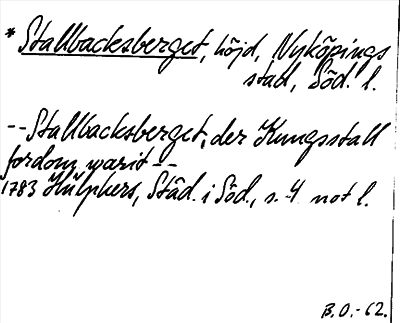 * Stallbacksberget, höjd, Nyköpings
stad, Söd. l.
--Stallbacksberget, der Kungsstall
fordom warit--
1783 Hülphers, Städ. i Söd., s. 4 not l.
B.O.-62.